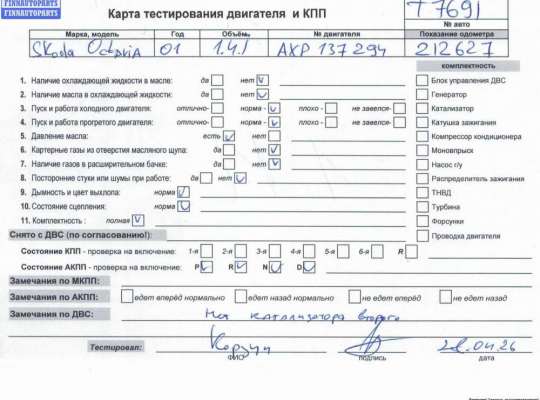 FINNAUTOPARTS
FINNAUTOPARTS
Карта тестирования двигателя и КПП
T7691
№ авто
Марка, модель Год Объём № двигателя Показание одометра
Skoda Octavia 01 1.4i AXP 137294 212627
комплектность
1. Наличие охлаждающей жидкости в масле: да нет
Блок управления ДВС
2. Наличие масла в охлаждающей жидкости: да нет
Генератор
3. Пуск и работа холодного двигателя: отлично- норма - плохо - не завелся-
Катализатор
4. Пуск и работа прогретого двигателя: отлично- норма - плохо - не завелся-
Катушка зажигания
5. Давление масла: есть нет
Компрессор кондиционера
6. Картерные газы из отверстия масляного щупа: да нет
Моновпрыск
7. Наличие газов в расширительном бачке: да нет
Насос г/у
8. Посторонние стуки или шумы при работе: да нет
Распределитель зажигания
9. Дымность и цвет выхлопа: норма
ТНВД
10. Состояние сцепления: норма
Турбина
11. Комплектность : полная
Форсунки
Снято с ДВС (по согласованию!):
Проводка двигателя
Состояние КПП - проверка на включение: 1-я 2-я 3-я 4-я 5-я 6-я R
Состояние АКПП - проверка на включение: P R N D
Замечания по МКПП:
Замечания по АКПП: едет вперёд нормально едет назад нормально не едет вперёд не едет назад
Замечания по ДВС: Нет катализатора второго
Тестировал: 28.04.26
ФИО подпись дата